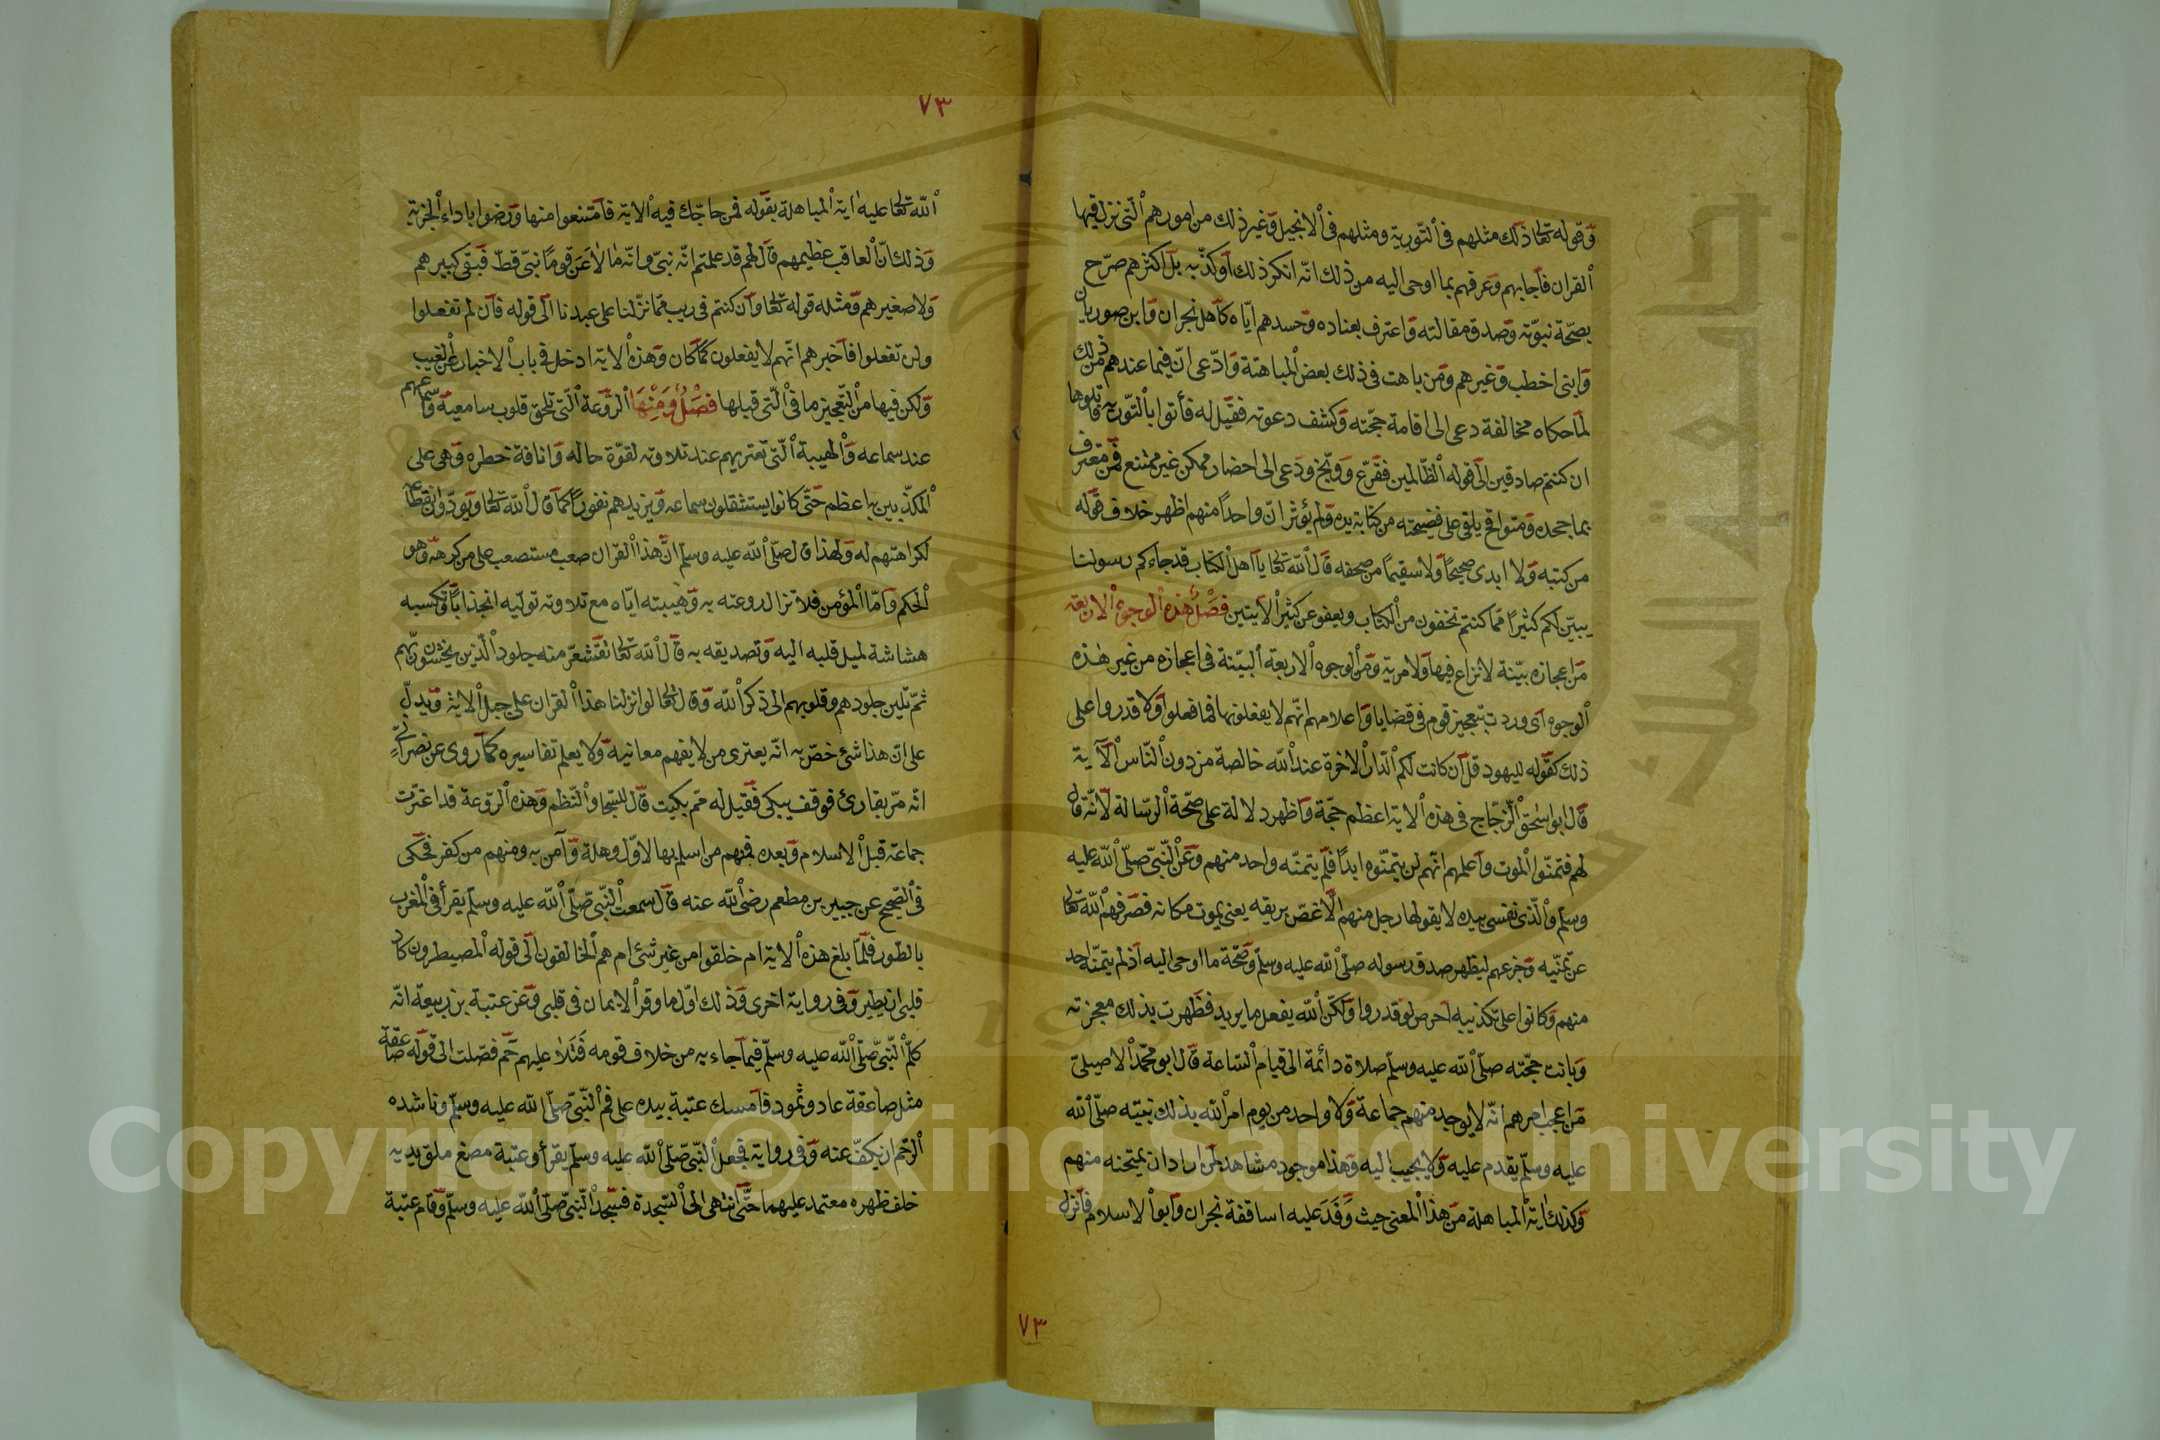 وقوله تعا ذلك مثلهم فى التورية ومثلهم فى الانجيل وغير ذلك من امورهم التى نزل فيها
القران فاجابهم وعرفهم بما اوحى اليه من ذلك انه انكر ذلك او كذبه بل اكثرهم صرح
بصحة نبوته وصدق مقالته واعترف بعناده وحسدهم اياه كاهل نجران وابن صوريا
وابنى اخطب وغيرهم ومن باهت فى ذلك بعض المباهتة وادعى ان فيما عندهم من ذلك
لما حكاه مخالفة دعى الى اقامة حجته وكشف دعوته فقيل له فأتوا بالتورية فاتلوها
ان كنتم صادقين الى قوله الظالمين فقرع ووبخ ودعى الى احضار ممكن غير ممتنع فمن معترف
بما جحده ومتواقح يلقى على فضيحته من كتابة يده ولم يؤثر ان واحدا منهم اظهر خلاف قوله
من كتبه ولا ابدى صحيحا ولا سقيما من صحفه قال الله تعا يا اهل الكتاب قدجاءكم رسولنا
يبين لكم كثيرا مما كنتم تخفون من الكتاب ويعفو عن كثير الايتين فصل هذه الوجوه الاربعة
من اعجازه بينة لا نزاع فيها ولا مرية ومن الوجوه الاربعة البينة فى اعجازه من غير هذه
الوجوه اى وردت بتعجيز قوم فى قضايا واعلامهم انهم لا يفعلونها فما فعلوا ولا قدروا على
ذلك كقوله لليهود قل ان كانت لكم الدار الاخرة عند الله خالصة من دون الناس الآية
قال ابو اسحق الزجاج فى هذه الاية اعظم حجة واظهر دلالة على صحة الرسالة لانه قال
لهم فتمنوا الموت واعلمهم انهم لن يتمنوه ابدا فلم يتمنه واحد منهم وعن النبى صلى الله عليه
وسلم والذى نفسى بيده لا يقولها رجل منهم الا غص بريقه يعنى يموت مكانه فصرفهم الله تعا
عن تمنيه وجزعهم ليظهر صدق رسوله صلى الله عليه وسلم وصحة ما اوحى اليه اذ لم يتمنه احد
منهم وكانوا على تكذيبه احرص لو قدروا ولكن الله يفعل ما يريد فظهرت بذلك معجزته
وبانت حجته صلى الله عليه وسلم صلاة دائمة الى قيام الساعة قال ابو محمد الاصيلى
من اعجب امرهم انه لا يوجد منهم جماعة ولا واحد من يوم امر الله بذلك نبيه صلى الله
عليه وسلم يقدم عليه ولا يجيب اليه وهذا موجود مشاهد لمن اراد ان يمتحنه منهم
وكذلك اية المباهلة من هذا المعنى حيث وفد عليه اساقفة نجران وابوا الاسلام فانزل
٧٣
٧٣
الله تعا عليه اية المباهلة بقوله فمن حاجك فيه الاية فامتنعوا منها ورضوا باداء الجزية
وذلك ان العاقب عظيمهم قال لهم قد علمتم انه نبى وانه ما لاعن قوما نبى قط فبقى كبيرهم
ولا صغيرهم ومثله قوله تعا وان كنتم فى ريب مما نزلنا على عبدنا الى قوله فان لم تفعلوا
ولن تفعلوا فاخبرهم انهم لا يفعلون كما كان وهذه الاية ادخل فى باب الاخبار عن الغيب
ولكن فيها من التعجيز ما فى التى قبلها فصل ومنها الروعة التى تلحق قلوب سامعيه واسماعهم
عند سماعه والهيبة التى تعتريهم عند تلاوته لقوة حاله وانافة خطره وهى على
المكذبين به اعظم حتى كانوا يستثقلون سماعه ويزيدهم نفورا كما قال الله تعا ويودون انقطاعه
لكراهتهم له ولهذا قال صلى الله عليه وسلم ان هذا القران صعب مستصعب على من كرهه وهو
الحكم واما المؤمن فلا تزال روعته به وهيبته اياه مع تلاوته توليه انجذابا وتكسبه
هشاشة لميل قلبه اليه وتصديقه به قال الله تعا تقشعر منه جلود الذين يخشون ربهم
ثم تلين جلودهم وقلوبهم الى ذكر الله وقال تعا لو انزلنا هذا القران على جبل الاية ويدل
على ان هذا شئ خص به انه يعترى من لا يفهم معانيه ولا يعلم تفاسيره كما روى عن نصرانى
انه مر بقارئ فوقف يبكى فقيل له مم بكيت قال للشجا والنظم وهذه الروعة قد اعترت
جماعة قبل الاسلام وبعده فمنهم من اسلم بها لاول وهلة وآمن به ومنهم من كفر فحكى
فى الصحيح عن جبير بن مطعم رضى الله عنه قال سمعت النبى صلى الله عليه وسلم يقرأ فى المغرب
بالطور فلما بلغ هذه الاية ام خلقوا من غير شئ ام هم الخالقون الى قوله المصيطرون كاد
قلبى ان يطير وفى رواية اخرى وذلك اول ما وقر الايمان فى قلبى وعن عتبة بن ربيعة انه
كلم النبى صلى الله عليه وسلم فيما جاء به من خلاف قومه فتلا عليهم حم فصلت الى قوله صاعقة
مثل صاعقة عاد وثمود فامسك عتبة بيده على فم النبى صلى الله عليه وسلم وناشده
الرحم ان يكف عنه وفى رواية فجعل النبى صلى الله عليه وسلم يقرأ وعتبة مصغ ملق يديه
خلف ظهره معتمد عليهما حتى انتهى الى السجدة فسجد النبى صلى الله عليه وسلم وقام عتبة
Copyright © King Saud University